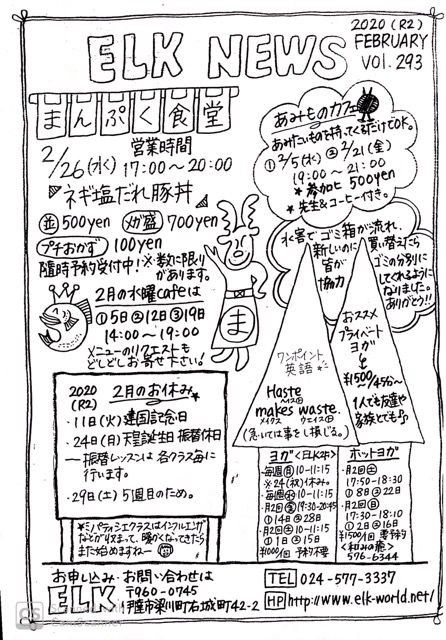 2020 (R2)
ELK NEWS
FEBRUARY
VOL.293
まんぷく食堂
営業時間
2/26(水) 17:00〜20:00
ネギ塩だれ豚丼
並 500yen メガ盛 700yen
プチおかず 100yen
随時予約受付中! ※数に限り
があります。
2月の水曜cafeは
①5日②12日③19日
14:00〜19:00
メニューのリクエストも
どしどしお寄せ下さい!
ま
あみものカフェ
あみたいものを持ってくるだけでOK。
①2/5(水) ②2/21(金)
19:00〜21:00
*参加ヒ 500yen
*先生&コーヒー付き。
水害でゴミ箱が流れ、
新しいのに買い替えたら
皆が
協力
ゴミの分別に
してくれるように
なりました。
ありがとう!!
ワンポイント
英語
Haste
ヘイスト
makes waste.
メイクス ウェイスト
(急いては事をし損じる。)
おススメ
プライベート
ヨガ
¥1500/45分〜
1人でも友達や
家族とでも♪
2020
(R2)
2月のお休み
・11日(火) 建国記念日
・24日(月) 天皇誕生日 振替休日
→振替レッスンは各クラス毎に
行います。
・29日(土) 5週目のため。
ヨガ<ELK本>
・毎週月10-11:15
※24(祝)休み。
・毎週水10-11:15
・月2回金19:30-20:45
①14日②28日
・月2回土10-11:15
①1日②15日
¥1000/1回 予約不要
ホットヨガ
・月2回土
17:50-18:30
①8日②22日
・月2回日
17:30-18:10
①2日②16日
¥1500/1回 要予約
<和みの庵>
576-6344
お申し込み・お問い合わせは
ELK
〒960-0745
伊達市梁川町右城町42-2
TEL 024-577-3337
HP http://www.elk-world.net/